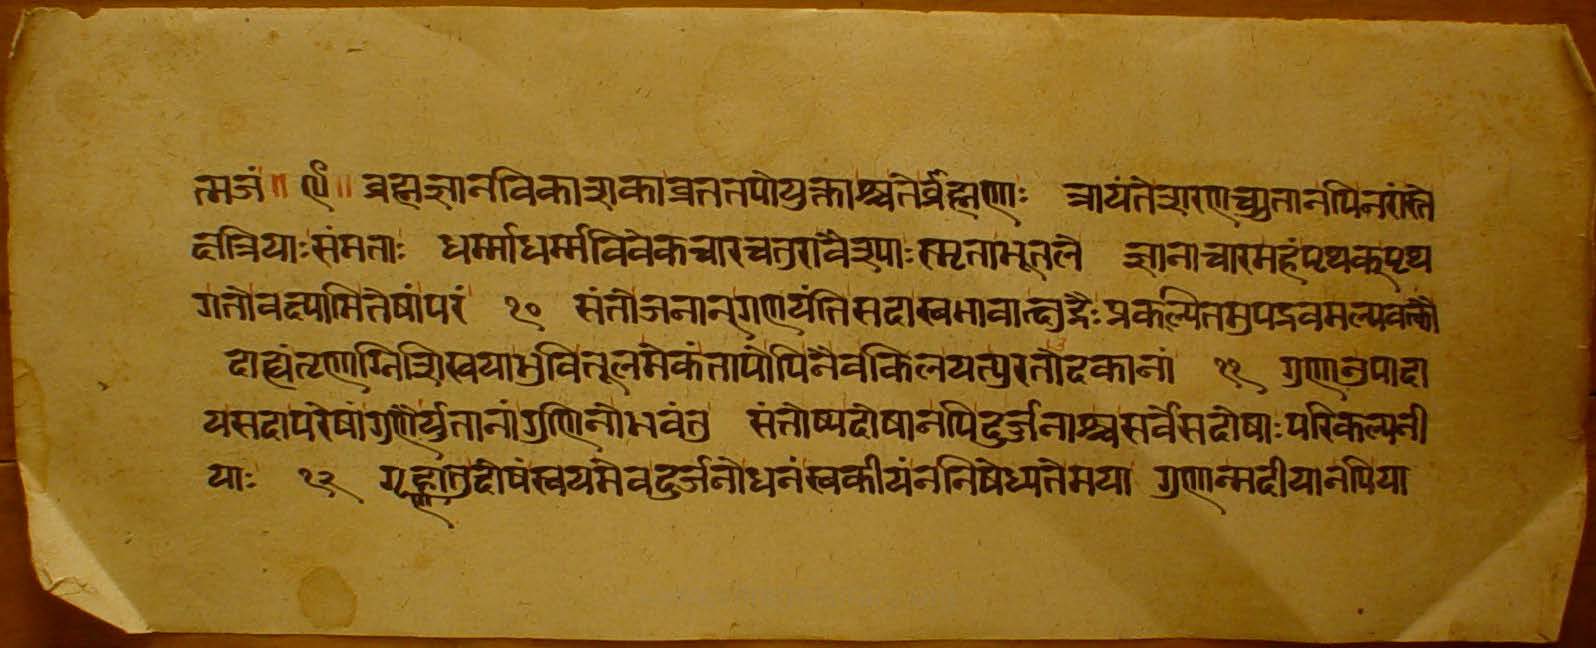 त्मजं ॥ ९ ॥ ब्रह्मज्ञानविकाशकाव्रततपोयुक्ताश्चतेर्ब्रह्मणाः त्रायंतेशरणच्युतानपिनरांस्ते
क्षत्रियाः संमताः धर्म्माधर्म्मविवेकचारचतुरावैश्यपाः स्मृताभूतले ज्ञानाचारमहंपृथक्पृथ
गतोवदयामितेषांपरं १० संतोजनानुगणयंतिसदास्वभावात्क्षुद्रैः प्रकल्पितमुपद्रवमल्पवत्तौ
दाह्यंतृणाग्निशिखयाभुवितूलमेकंतापोपिनैवकिलयत्पुरतोदकानां ११ गुणानुपादा
यसदापरेषांगुणैर्युतानांगुणिनोभवंतु संतोष्यदोषानपिदुर्जनाश्चसर्वेसदोषाः परिकल्पनी
याः १२ गृह्णातुदोषंस्वयमेवदुर्जनोधनंस्वकीयंननिषेध्यतेमया गुणान्मदीयानपिया